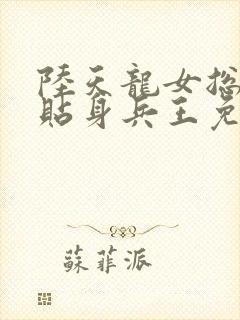 陸天龍女總
貼身兵王免
蘇菲派